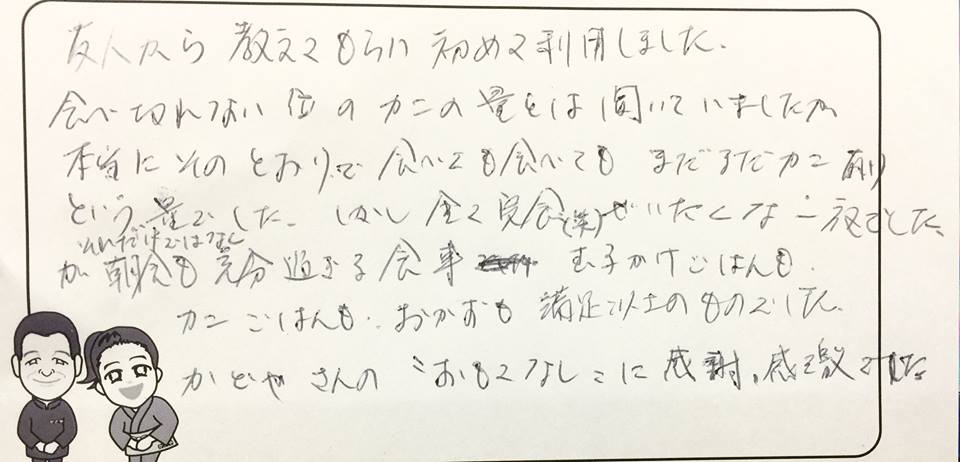 友人から 教えてもらい 初めて利用しました。
食べ切れない位のカニの量とは聞いていましたが
本当にそのとおりで食べても食べても まだまだカニ有り
という量でした。しかし全て完食(笑)ぜいたくな一夜でした
それだけではなく
が朝食も充分過ぎる食事 玉子かけごはんも、
カニごはんも、おかずも 満足以上のものでした。
かどやさんの〝おもてなし〟に感謝、感激でした。